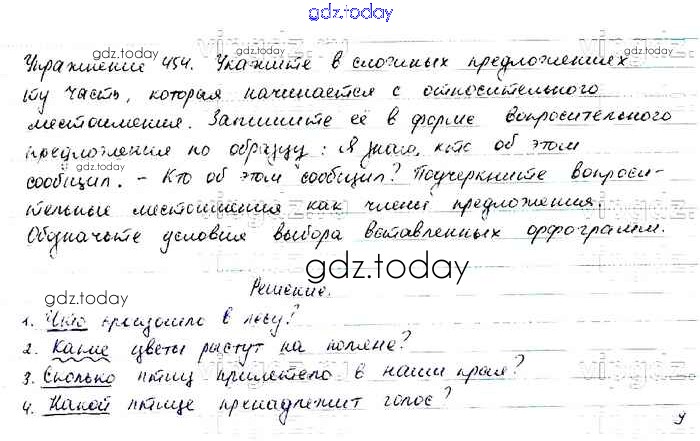 gdz.today
Упражнение 454. Укажите в сложных предложениях
ту часть, которая начинается с относительного
местоимения. Запишите её в форме вопросительного
предложения по образцу: Я знаю, кто об этом
сообщил. - Кто об этом сообщил? Подчеркните вопроси-
тельные местоимения как члены предложения.
Обозначьте условия выбора вставленных орфограмм.
gdz.today
Решение.
1. Что произошло в лесу?
2. Какие цветы растут на поляне?
3. Сколько птиц прилетело в наши края?
4. Какой птице принадлежит голос?
gdz.today
gdz.today
gdz.today
gdz.today
gdz.today